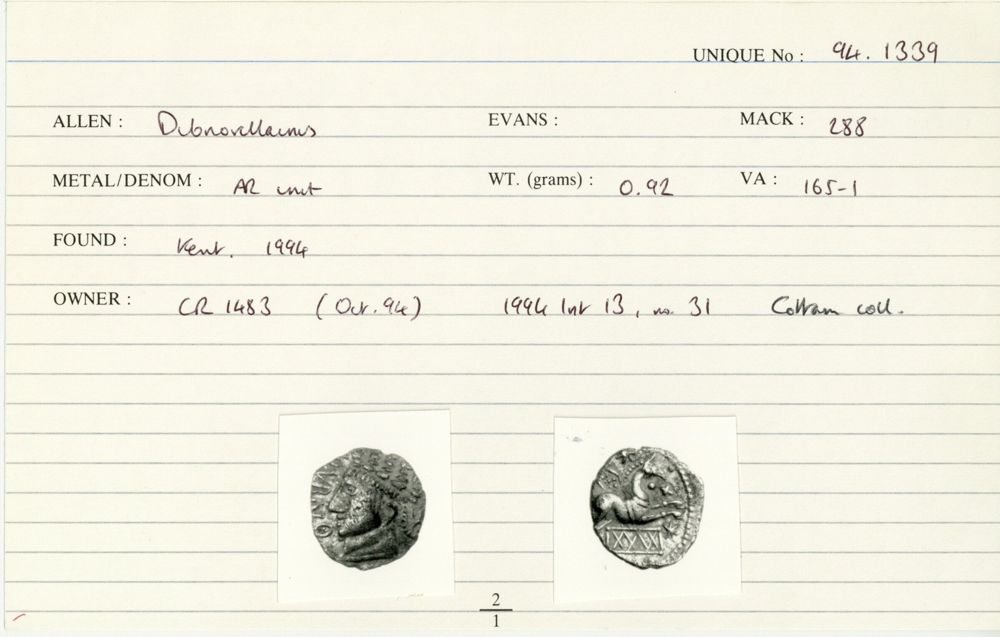 UNIQUE No : 94. 1339
ALLEN : Dubnovellaunus EVANS : MACK : 288
METAL/DENOM : AR unit WT. (grams) : 0.92 VA : 165-1
FOUND : Kent. 1994
OWNER : CR 1483 (Oct. 94) 1994 Int 13, no. 31 Cottam coll.
2
1